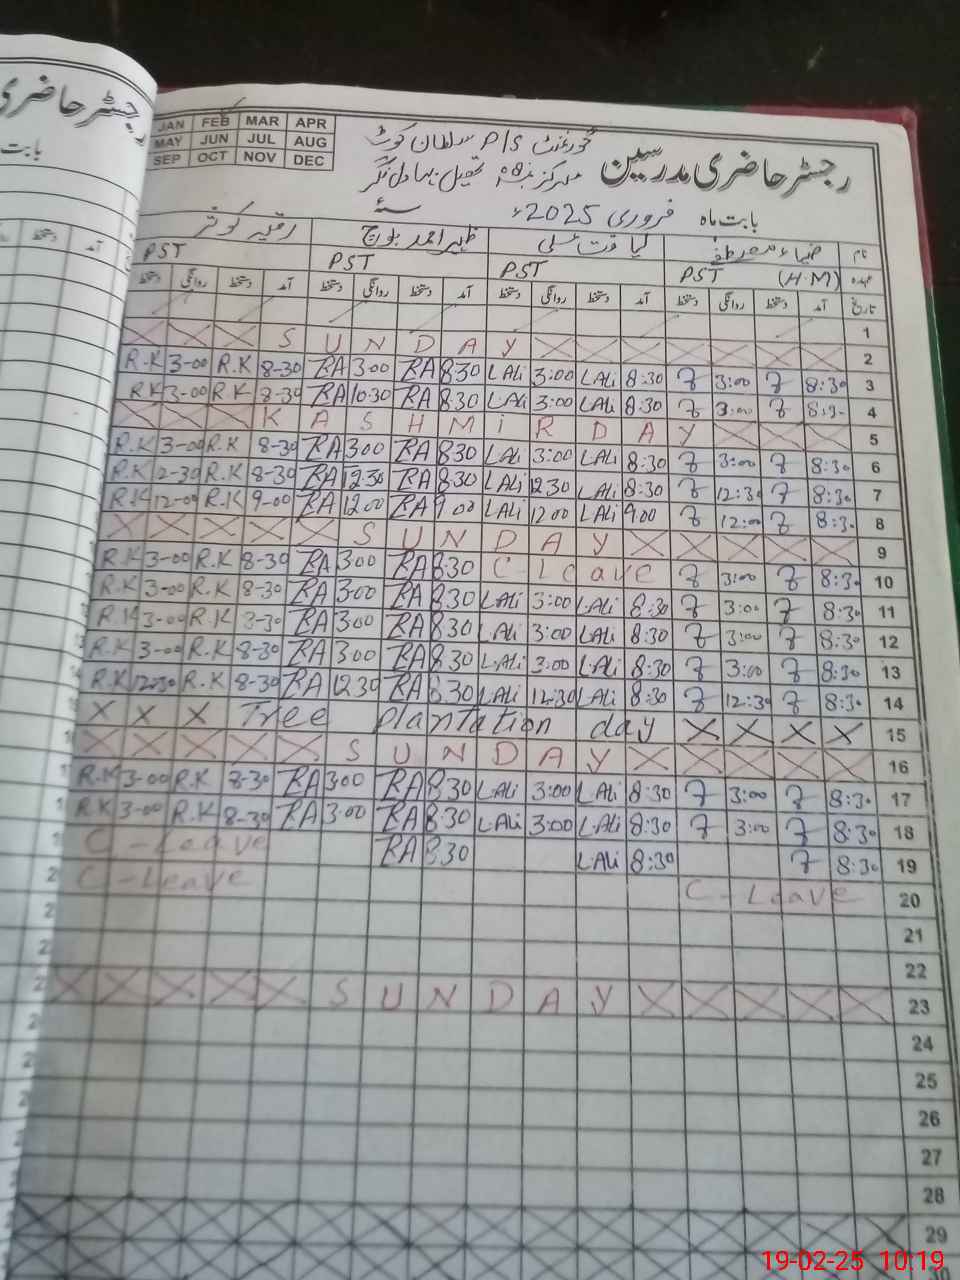 رجسٹر حاضری
بابت
JAN FEB MAR APR
MAY JUN JUL AUG
SEP OCT NOV DEC
گورنمنٹ P/S سلطان کوٹ
رجسٹر حاضری مدرسین
مرکز تحصیل بہاولنگر
بابت ماہ فروری 2025ء سنہ
نام ضیاء مصطفیٰ لیاقت علی ظہیر احمد بلوچ رقیہ کوثر
عہدہ PST (H.M) PST PST PST
تاریخ آمد دستخط روانگی دستخط آمد دستخط روانگی دستخط آمد دستخط روانگی دستخط آمد دستخط روانگی دستخط
1
SUNDAY 2
R.K 3-00 R.K 8-30 RA 300 RA 8.30 L.Ali 3:00 L.Ali 8:30 3:00 8:30 3
R.K 3-00 R.K 8-30 RA 10.30 RA 8.30 L.Ali 3:00 L.Ali 8:30 3:00 8:30 4
KASHMIR DAY 5
R.K 3-00 R.K 8-30 RA 300 RA 8.30 L.Ali 3:00 L.Ali 8:30 3:00 8:30 6
R.K 12-30 R.K 8-30 RA 12.30 RA 8.30 L.Ali 12.30 L.Ali 8:30 12:30 8:30 7
R.K 12-00 R.K 9-00 RA 12.00 RA 9.00 L.Ali 12.00 L.Ali 9.00 12:00 8:30 8
SUNDAY 9
R.K 3-00 R.K 8-30 RA 300 RA 8.30 C-Leave 3:00 8:30 10
R.K 3-00 R.K 8-30 RA 300 RA 8.30 L.Ali 3:00 L.Ali 8:30 3:00 8:30 11
R.K 3-00 R.K 8-30 RA 300 RA 8.30 L.Ali 3:00 L.Ali 8:30 3:00 8:30 12
R.K 3-00 R.K 8-30 RA 300 RA 8.30 L.Ali 3:00 L.Ali 8:30 3:00 8:30 13
R.K 12-30 R.K 8-30 RA 12.30 RA 8.30 L.Ali 12:30 L.Ali 8:30 12:30 8:30 14
X X X Tree plantation day X X X X 15
SUNDAY 16
R.K 3-00 R.K 8-30 RA 300 RA 8.30 L.Ali 3:00 L.Ali 8:30 3:00 8:30 17
R.K 3-00 R.K 8-30 RA 3.00 RA 8.30 L.Ali 3:00 L.Ali 8:30 3:00 8:30 18
C-Leave RA 8.30 L.Ali 8:30 8:30 19
C-Leave C-Leave 20
21
22
SUNDAY 23
24
25
26
27
28
29
30
19-02-25 10:19